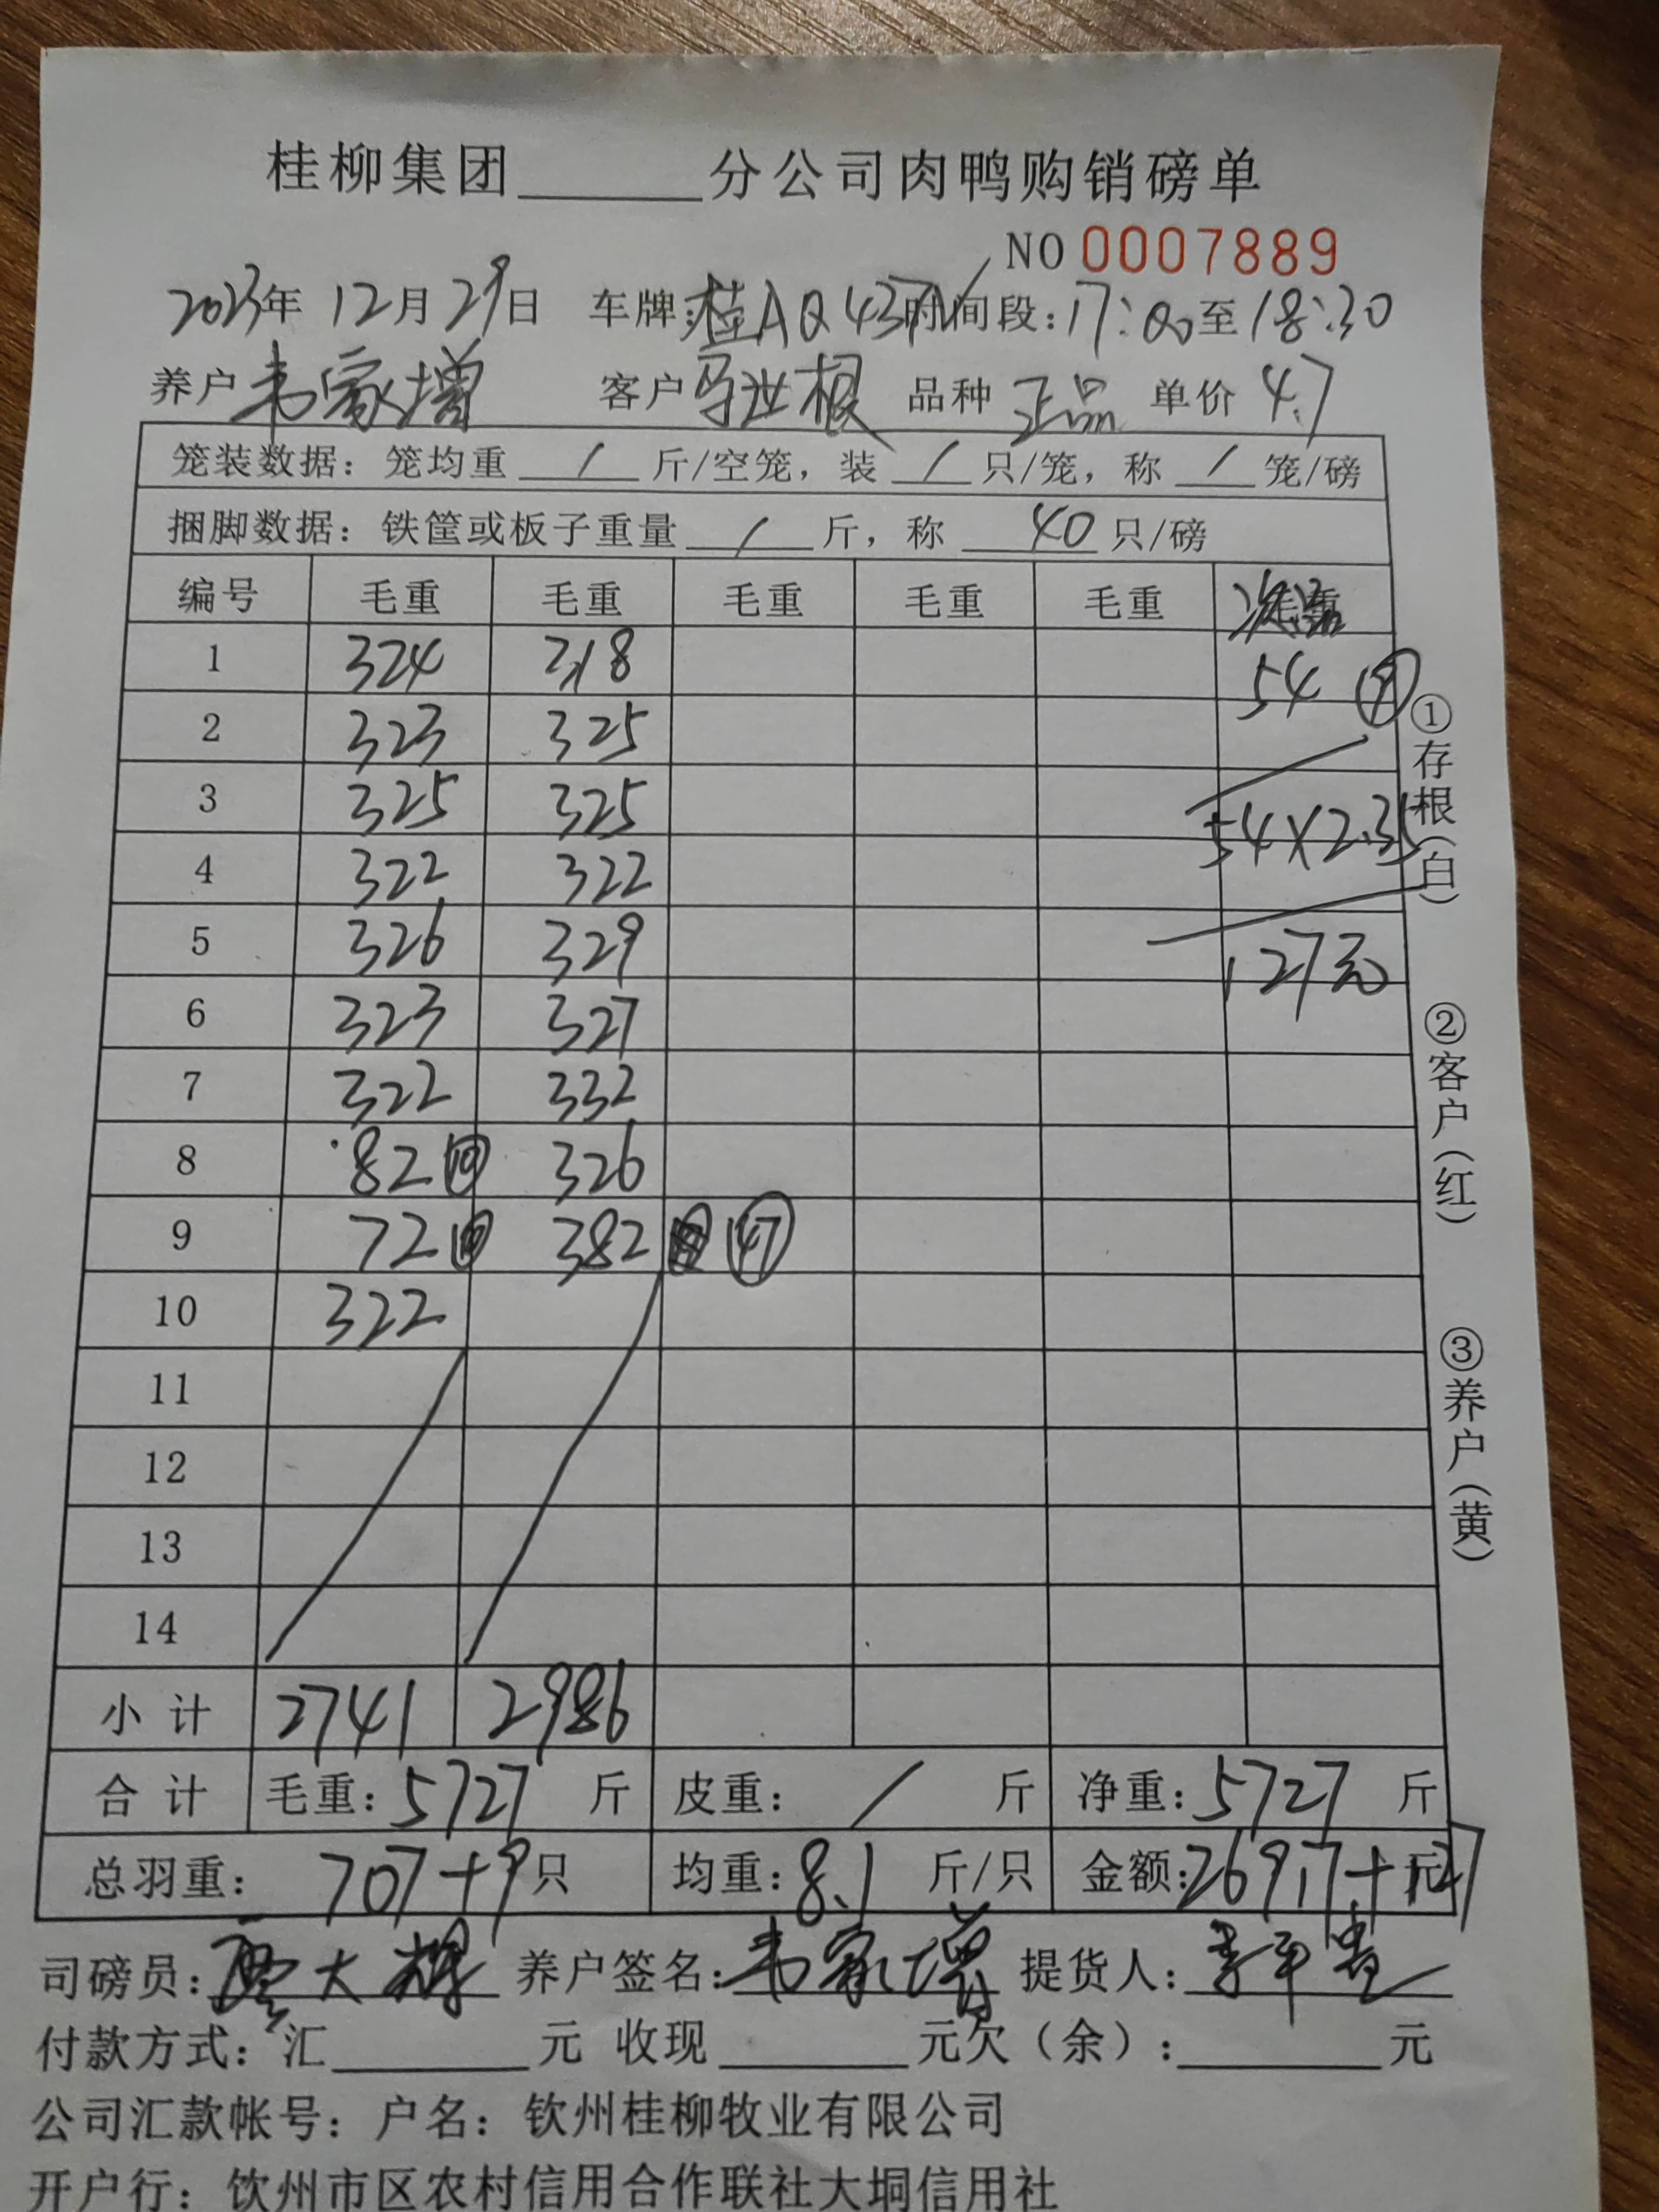 桂柳集团______分公司肉鸭购销磅单
NO 0007889
2023年 12月 29日 车牌:桂AQ437V 时间段:17:00至18:30
养户 韦家增 客户 马世根 品种 正品 单价 4.7
笼装数据: 笼均重 / 斤/空笼, 装 / 只/笼, 称 / 笼/磅
捆脚数据: 铁筐或板子重量 / 斤, 称 40 只/磅
编号 毛重 毛重 毛重 毛重 毛重
1 324 318 54 ⑨
2 323 325
3 325 325 54×2.35
4 322 322
5 326 329 127元
6 323 327
7 322 332
8 82 ⑩ 326
9 72 ⑩ 382 ㊼
10 322
11
12
13
14
小计 2741 2986
合计 毛重: 5727 斤 皮重: / 斤 净重: 5727 斤
总羽重: 707+9 只 均重: 8.1 斤/只 金额: 26917+127 元
司磅员: 大 养户签名: 韦家增 提货人:
付款方式: 汇______元 收现______元欠(余):______元
公司汇款帐号: 户名: 钦州桂柳牧业有限公司
开户行: 钦州市区农村信用合作联社大垌信用社
①存根(白)
②客户(红)
③养户(黄)